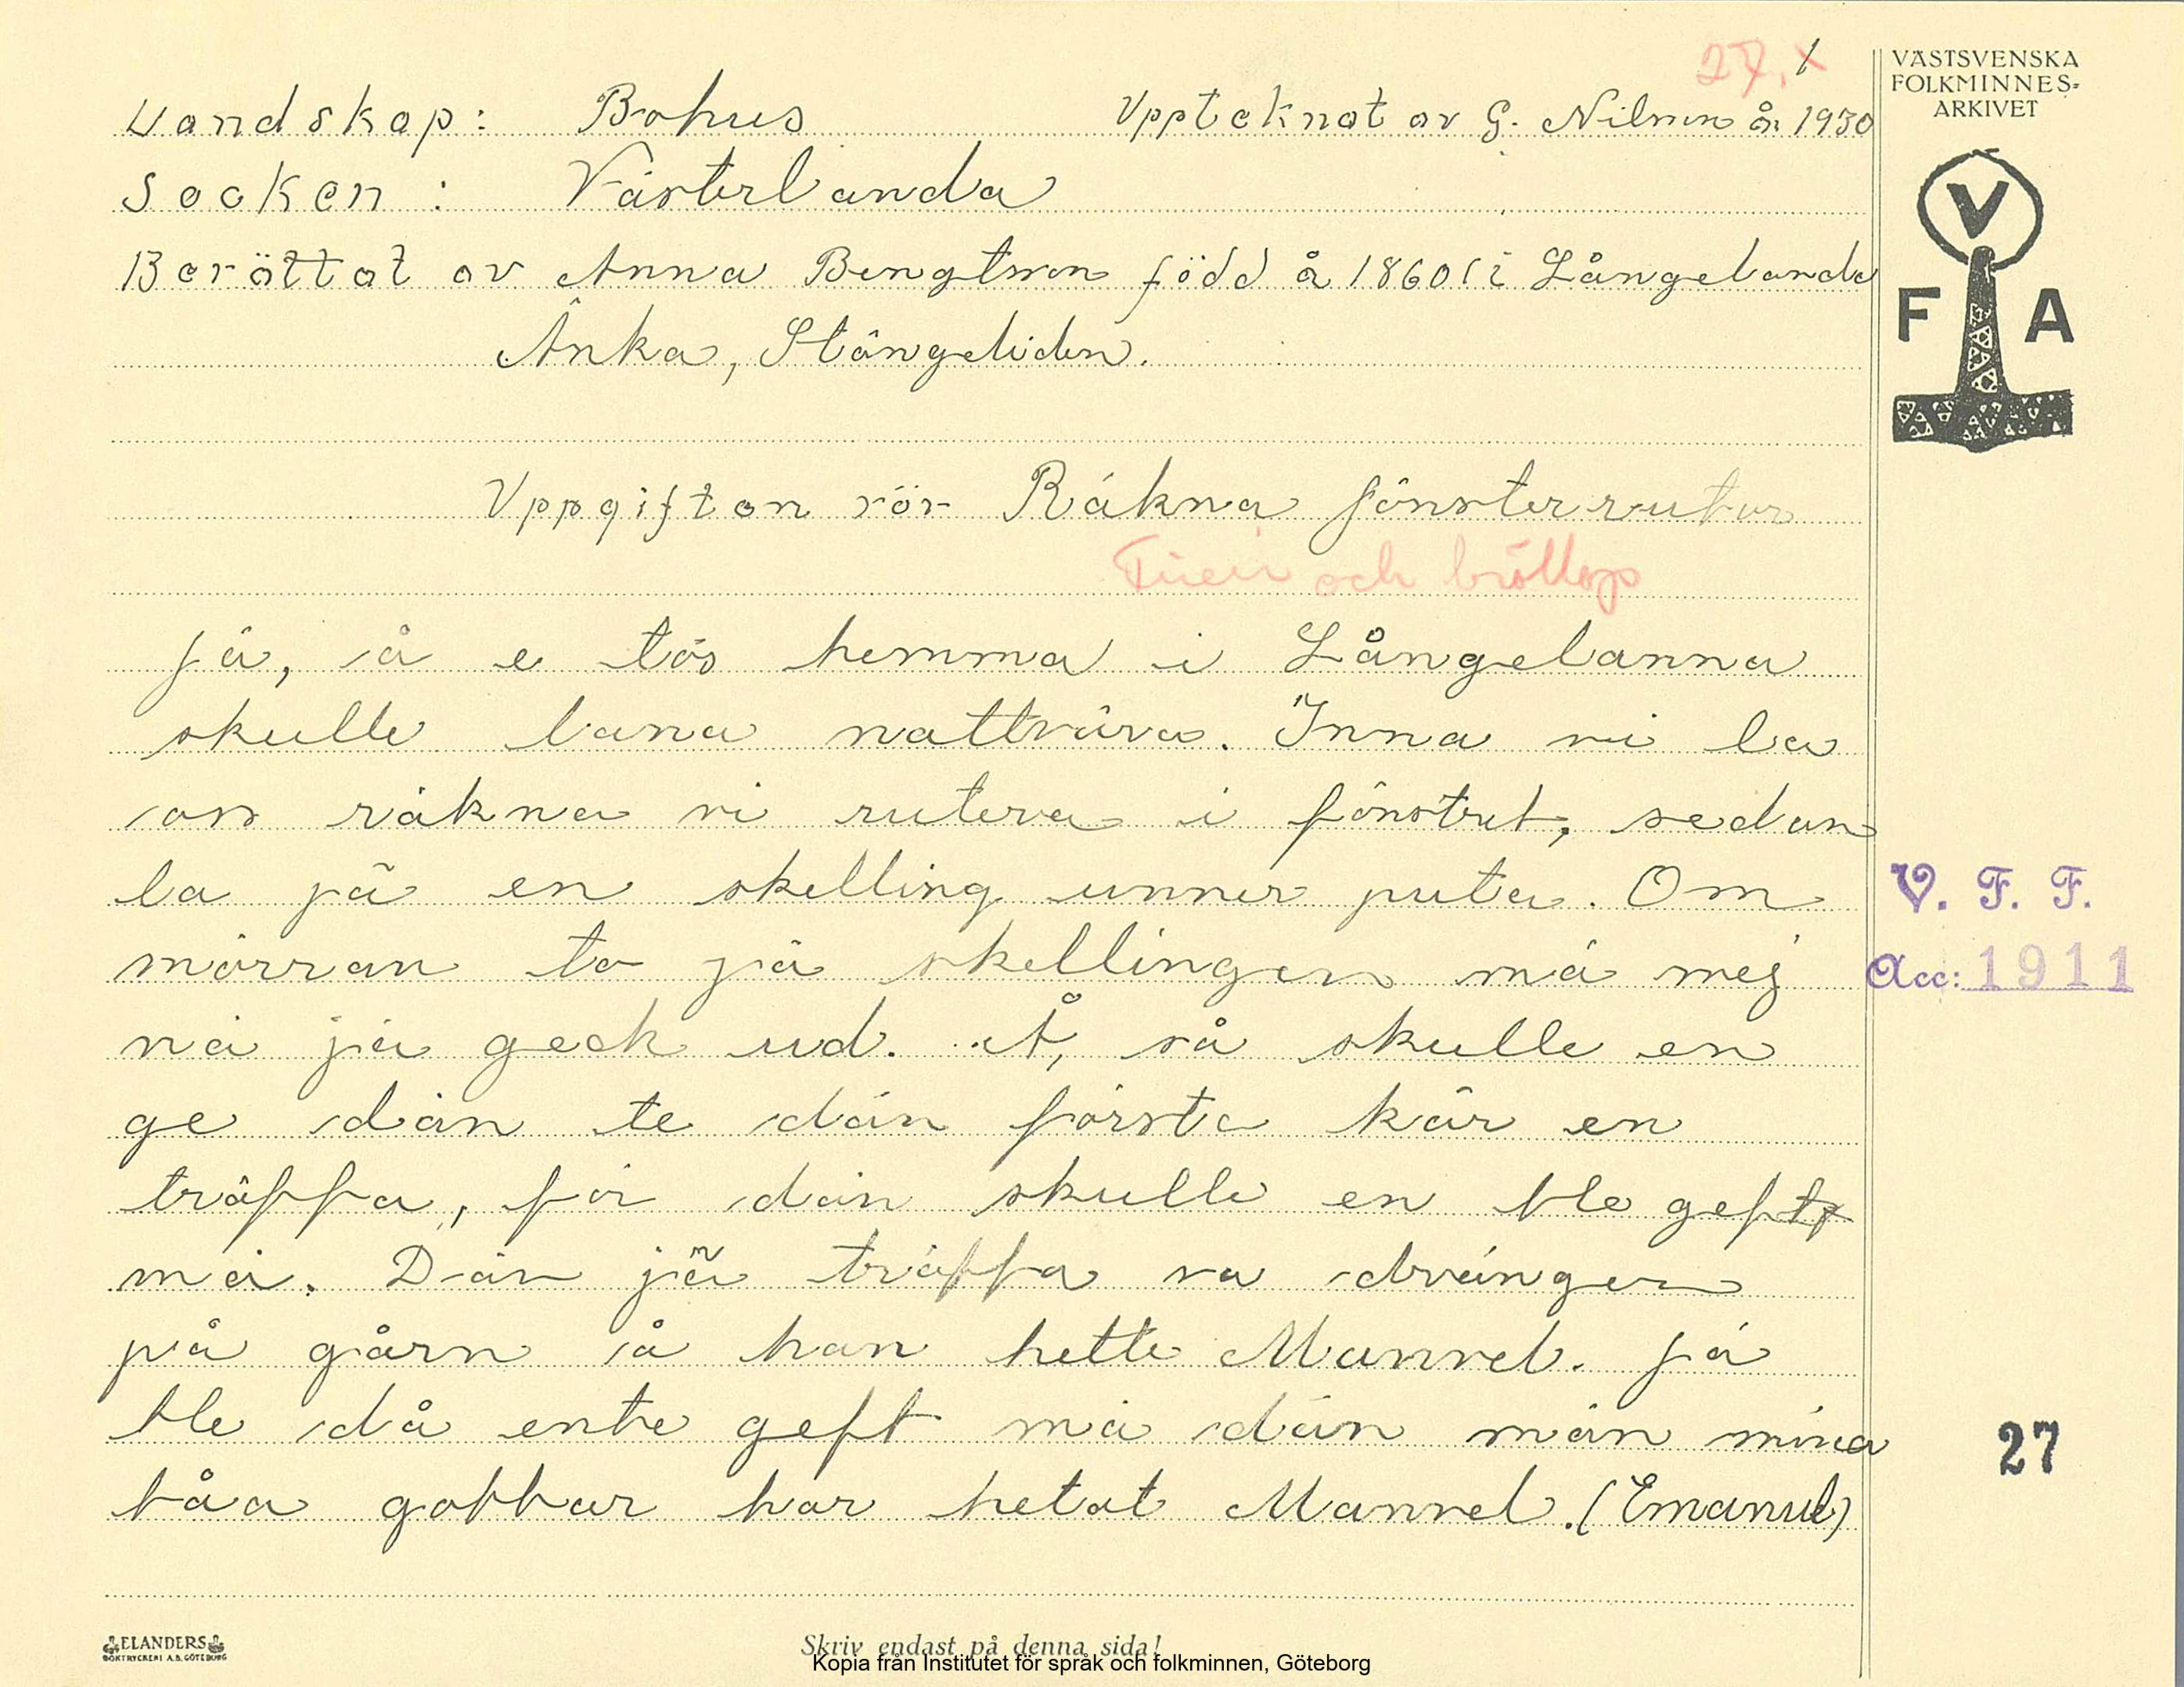 27. X
1
VÄSTSVENSKA
FOLKMINNES-
ARKIVET
Landskap: Bohus Upptecknat av G. Nilsson år 1930
Socken: Västerlanda
V
F A
Berättat av Anna Bengtsson född år 1860 i Långelanda
Änka, Stängeliden.
Uppgiften rör Räkna fönsterrutor
och bröllop
Jä, så e tös hemma i Långelanna
skulle lana nattvära. Inna vi la
oss räkna vi rutera i fönstret, sedan
la jä en skelling unner puta. Om
mörran to jä skellingen mä mej
nä jä geck ud. Å, så skulle en
ge dän te dän förste kär en
träffa, för dän skulle en ble geft
mä. Dän jä träffa va drängen
på gårn å han hette Manvel. Jä
ble då ente geft mä dän män mina
båa gobbar har hetat Manvel. (Emanuel)
V. F. F.
Acc: 1911
27
ELANDERS
BOKTRYCKERI A.B. GÖTEBORG
Skriv endast på denna sida!
Kopia från Institutet för språk och folkminnen, Göteborg